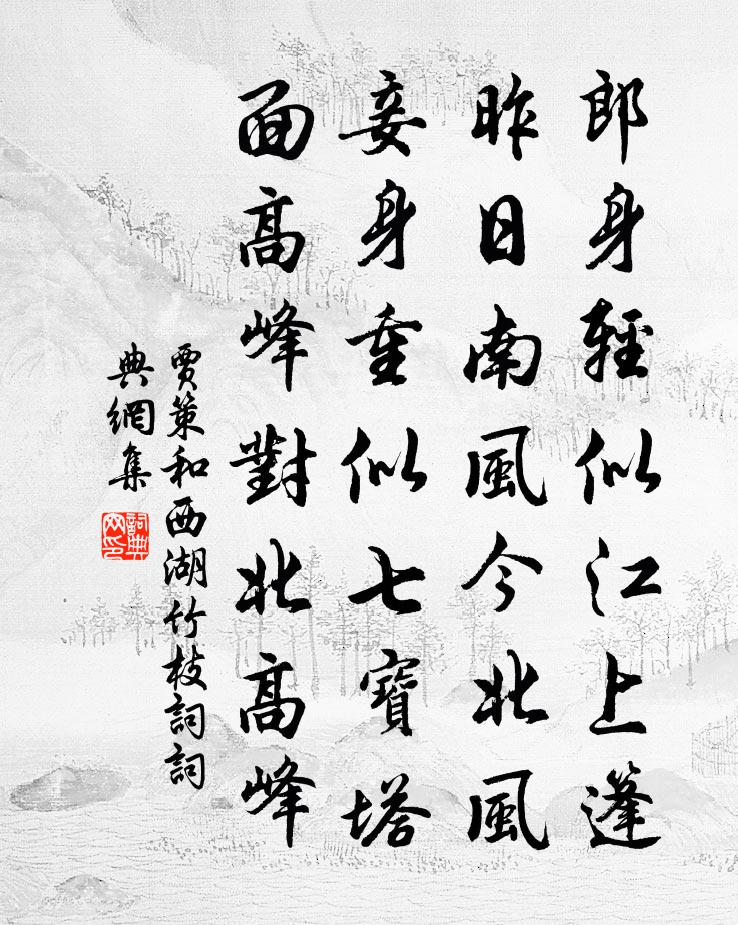 郎身輕似江上篷
昨日南風今北風
妾身重似七寶塔
面高峰對北高峰
賈策和西湖竹枝詞詞
典網集
詞典
网印